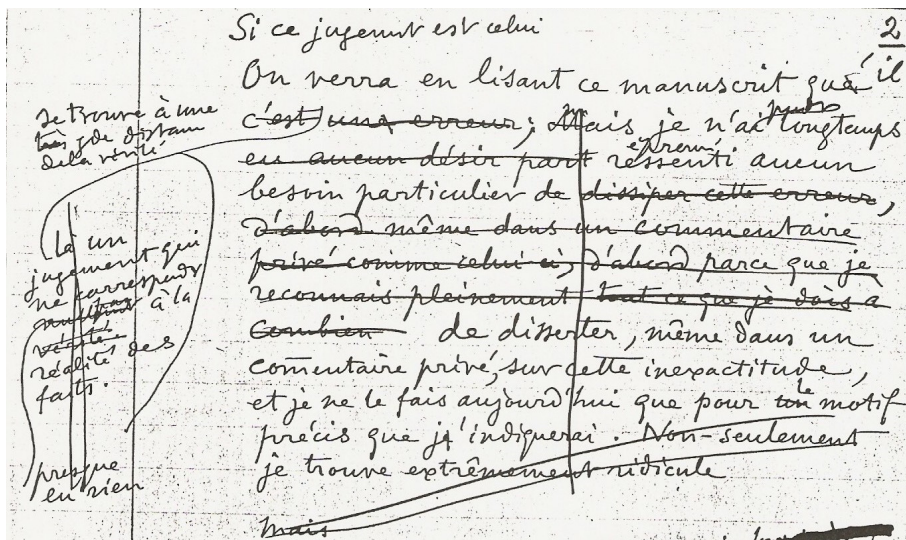 2
Si ce jugement est celui
On verra en lisant ce manuscrit que il
c'est une erreur; Mais je n'ai longtemps
eu aucun désir part ressenti aucun
besoin particulier de dissiper cette erreur,
d'abord même dans un commentaire
privé comme celui ci, d'abord parce que je
reconnais pleinement tout ce que je dois à
Combien de disserter, même dans un
comentaire privé, sur cette inexactitude,
et je ne le fais aujourd'hui que pour un le motif
précis que j'indiquerai. Non-seulement
je trouve extrêmement ridicule
Mais
se trouve à une
très gde distance
de la vérité
là un
jugement qui
ne correspond
à la
vérité
réalité des
faits.
presque
en rien